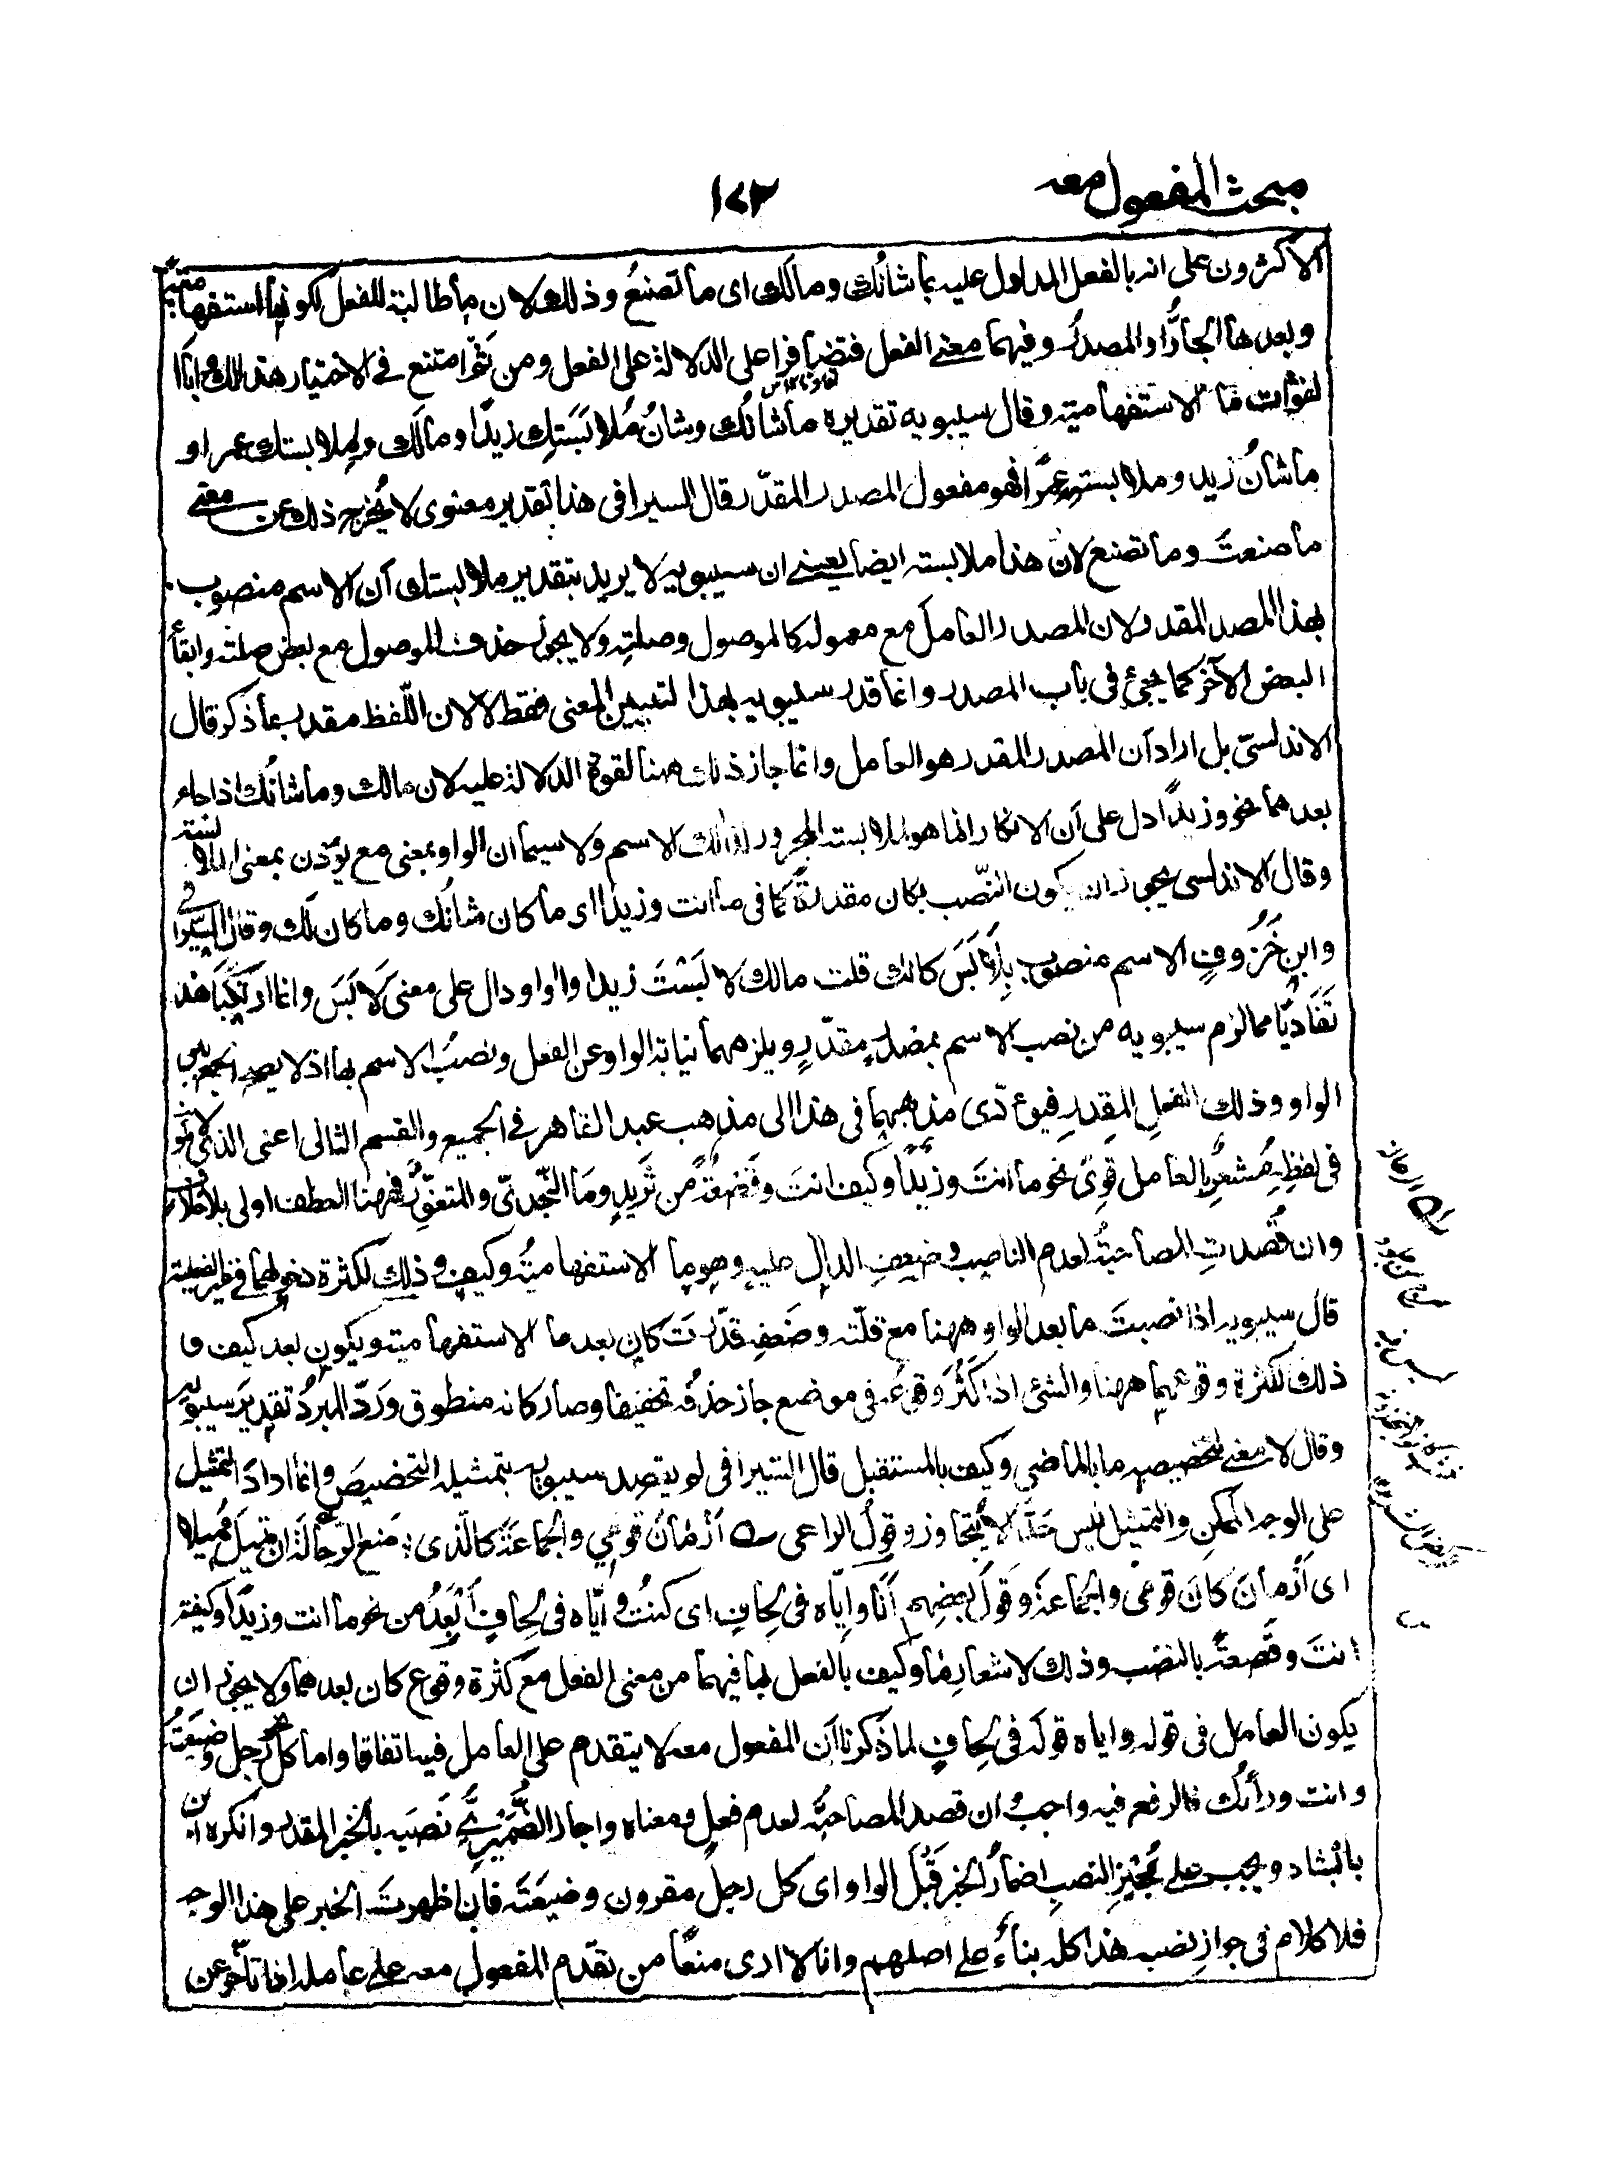 مبحث المفعول معه
١٧٢
الاكثرون على انه بالفعل المدلول عليه بما شانُك ومالَك اى ما تصنعُ وذلك لان ما طالبة للفعل لكونها استفهامية
وبعدها الجارُّ او المصدر وفيهما معنى الفعل فتضافرا على الدلالة على الفعل ومن ثَمّ امتنع فى الاختيار هذا لك واباك
لفوات ما الاستفهامية وقال سيبويه تقديره ما شانُك وشانُ مُلابَسَتِك زيدًا ومالَك ولملابستك عمرا و
ما شانُ زيد وملابسته عمرًا فهو مفعول المصدر المقدّر قال السيرافى هذا تقدير معنوى لا يُخرج ذلك عن معنى
ما صنعتَ وما تصنع لانّ هذا ملابسته ايضا يعنى ان سيبويه لا يريد بتقدير ملابستك أن الاسم منصوب
بهذا المصدر المقدر لان المصدر العامل مع معموله كالموصول وصلتِه ولا يجوز حذف الموصول مع بعض صلته وابقاء
البعض الآخر كما يجئ فى باب المصدر وانما قدر سيبويه بهذا لتبيين المعنى فقط لا لان اللّفظ مقدر بما ذكر قال
الاندلسىّ بل اراد أن المصدر المقدر هو العامل وانما جاز ذلك ههنا لقوة الدلالة عليه لان مالك وما شانُك اذا جاء
بعدهما نحو وزيدًا دل على أن الانكار انما هو لملابسته المجرور لذلك الاسم ولا سيما ان الواو بمعنى مع يؤذن بمعنى الملابسة
وقال الاندلسى يجوز ان يكون النّصب بكان مقدرةً كما فى ما انت وزيدا اى ما كان شانُك وما كان لك وقال السيرافى
وابن خَرُوفٍ الاسم منصوب بِلابَسَ كانك قلت مالك لابَسْتَ زيدا والواو دال على معنى لابَسَ وانما ارتكبا هذا
تَفَاديًا مما لزم سيبويه من نصب الاسم بمصدرٍ مقدّرٍ ويلزمهما نيابة الواو عن الفعل ونصبُ الاسم بها اذ لا يصح الجمع بين
الواو وذلك الفعلِ المقدرِ فيؤدّى مذهبهما فى هذا الى مذهب عبد القاهر فى الجميع والقسم الثانى اعنى الذى لا يكون
فى لفظِهِ مُشعِرٌ بالعامل قوىٌّ نحو ما انتَ وزيدًا وكيف انتَ وقصعةً من ثَرِيدٍ وما النّجدىّ والمتغوِّر فههنا العطف اولى بلا خلاف
وان قُصدتِ المصاحبةُ لعدم الناصب وضعف الدالّ عليه وهو ما الاستفهاميةُ وكيف وذلك لكثرة دخولهما فى غير الفعلية
قال سيبويه اذا نصبتَ ما بعد الواو ههنا مع قلّته وضَعفِه قدّرتَ كان بعد ما الاستفهامية ويكون بعد كيف و
ذلك لكثرة وقوعهما ههنا والشئ اذا كَثُرَ وقوعُه فى موضع جاز حذفُه تخفيفا وصار كانه منطوق ورَدّ المبردُ تقديرَ سيبويه
وقال لا معنى لتخصيصه ما بالماضى وكيف بالمستقبل قال السّيرافى لم يقصد سيبويه بتمثيله التخصيصَ وانما اراد التمثيل
على الوجه الممكن والتمثيل ليس حَدًّا لا يُتجاوز وقولُ الراعى أَزْمانَ قومى والجماعةَ كالّذى * مَنع الرّحالةَ ان تميلَ مَميلا
اى أَزْمانَ كانَ قومى والجماعةَ وقولُ بعضِهم أنَا وإيّاه فى لِحافٍ اى كنتُ وايّاه فى لِحافٍ أَبعَدُ من نحو ما انت وزيدًا وكيف
انتَ وقَصعةً بالنصب وذلك لاشعار ما وكيف بالفعل لما فيهما من معنى الفعل مع كثرة وقوع كان بعدهما ولا يجوز ان
يكون العامل فى قوله واياه قولَه فى لحافٍ لما ذكرنا أن المفعول معه لا يتقدم على العامل فيه اتفاقا واما كلّ رجل وضيعتُه
وانت ورأيُك فالرفع فيه واجب وان قصد المصاحبة لعدم فعلٍ ومعناه واجاز الصَّيْمَرِىُّ نَصبَه بالخبر المقدر وانكره ابن
بابْشاذ ويجب على مُجيزِ النصبِ اضمارُ الخبر قَبْلَ الواو اى كل رجل مقرون وضيعتَه فان اظهرتَ الخبر على هذا الوجه
فلا كلام فى جوازِ نصبه هذا كله بناءً على اصلهم وانا لا ارى منعًا من تقدّم المفعول معه على عامله اذا تأخر عن